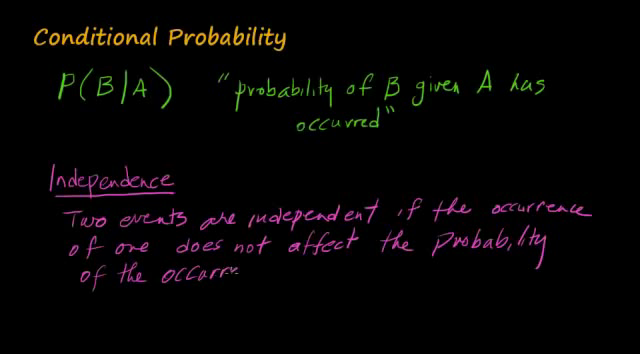 Conditional Probability
P(B/A) "probability of B given A has
occurred"
Independence
Two events are independent if the occurrence
of one does not affect the probability
of the occurr